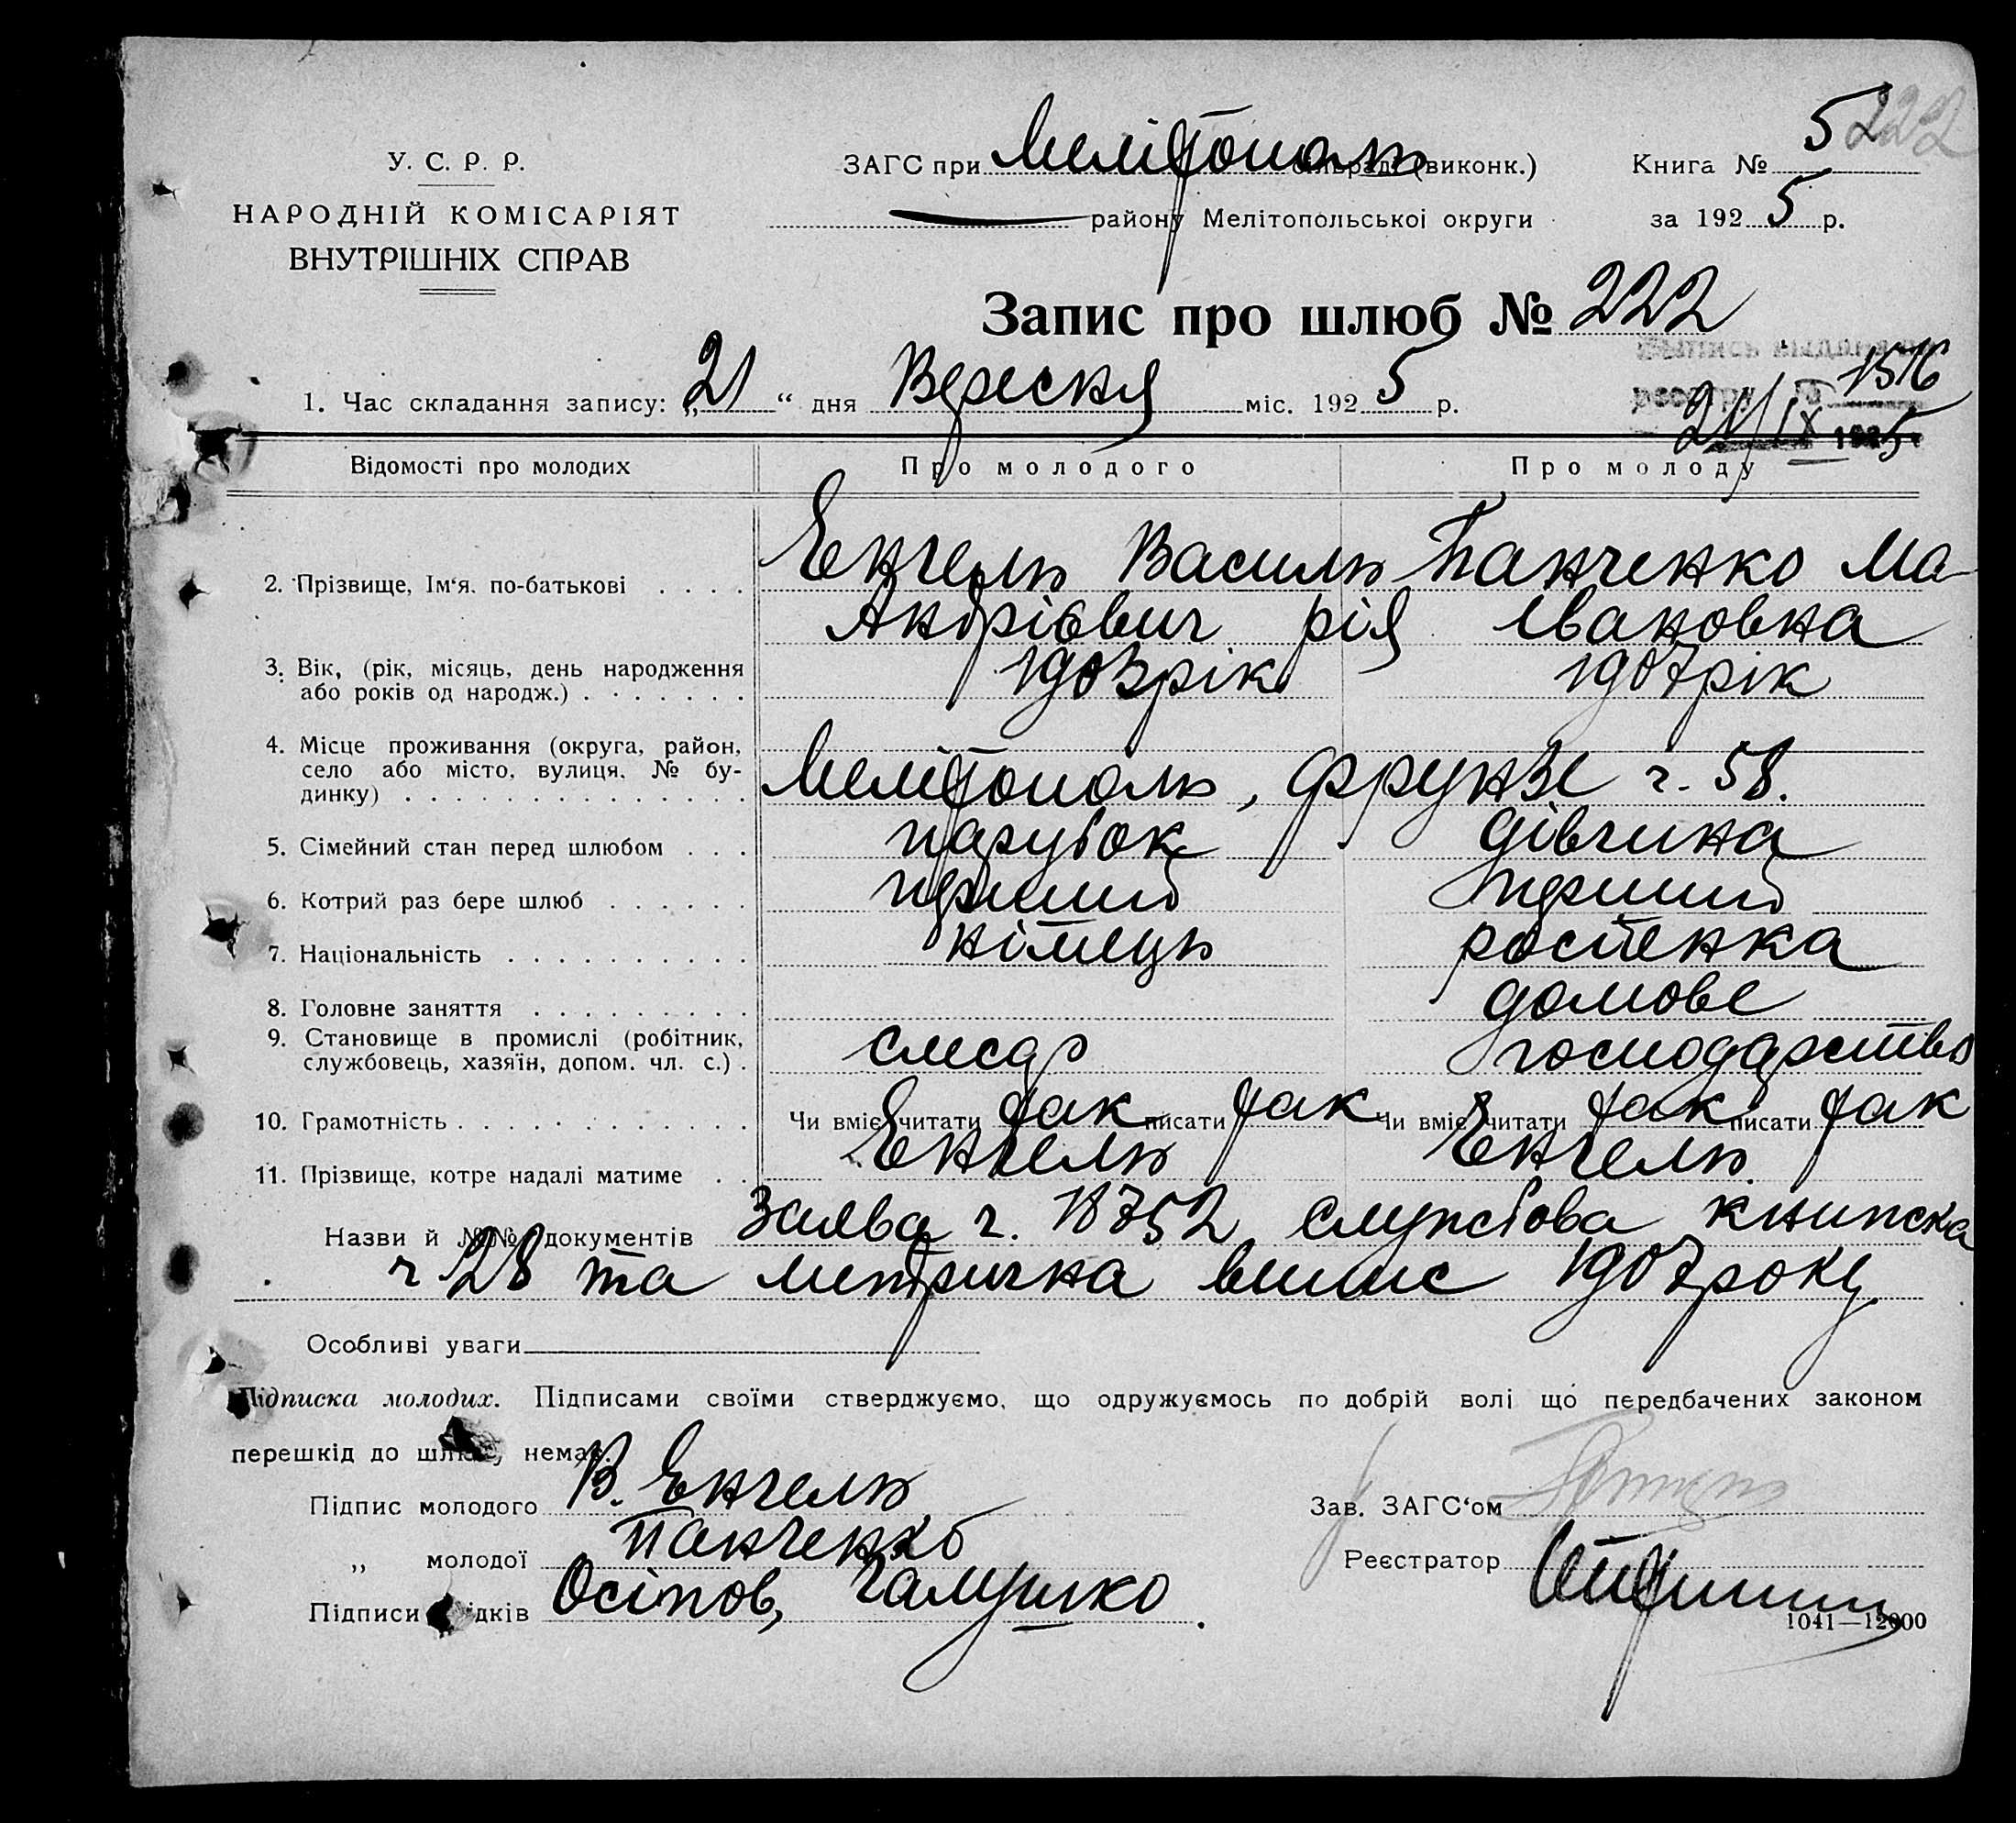 5 222
У. С. Р. Р.
ЗАГС при Мелітополь сільраді (виконк.) Книга №
НАРОДНІЙ КОМІСАРІЯТ
району Мелітопольської округи за 1925 р.
ВНУТРІШНІХ СПРАВ
Запис про шлюб № 222
1516
1. Час складання запису: „21“ дня Вересня міс. 1925 р.
21/IX 1925
Відомості про молодих Про молодого Про молоду
2. Прізвище, Ім‘я, по-батькові . . . . Енгель Василь Панченко Ма-
Андрієвич рія Івановна
3. Вік, (рік, місяць, день народження 1903 рік 1907 рік
або років од народж.) . . . . . . .
4. Місце проживання (округа, район,
село або місто, вулиця, № бу- Мелітополь, Фрунзе ч. 58.
динку) . . . . . . . . . . . . . .
5. Сімейний стан перед шлюбом . . . парубок дівчина
6. Котрий раз бере шлюб . . . . . . перший перший
7. Національність . . . . . . . . . . німець росіенка
8. Головне заняття . . . . . . . . . домове
9. Становище в промислі (робітник, слесар господарство
службовець, хазяїн, допом. чл. с.) .
10. Грамотність . . . . . . . . . . . . Чи вміє читати так писати так Чи вміє читати так писати так
11. Прізвище, котре надалі матиме . . Енгель Енгель
Назви й №№ документів Заява ч. 18752 службова книжка
ч 28 та метрична випис 1907 року
Особливі уваги
Підписка молодих. Підписами своїми стверджуємо, що одружуємось по добрій волі що передбачених законом
перешкід до шлюбу немає.
Підпис молодого В. Енгель Зав. ЗАГС‘ом
„ молодої Панченко Реєстратор
Підписи свідків Осіпов, Галушко.
1041—12000